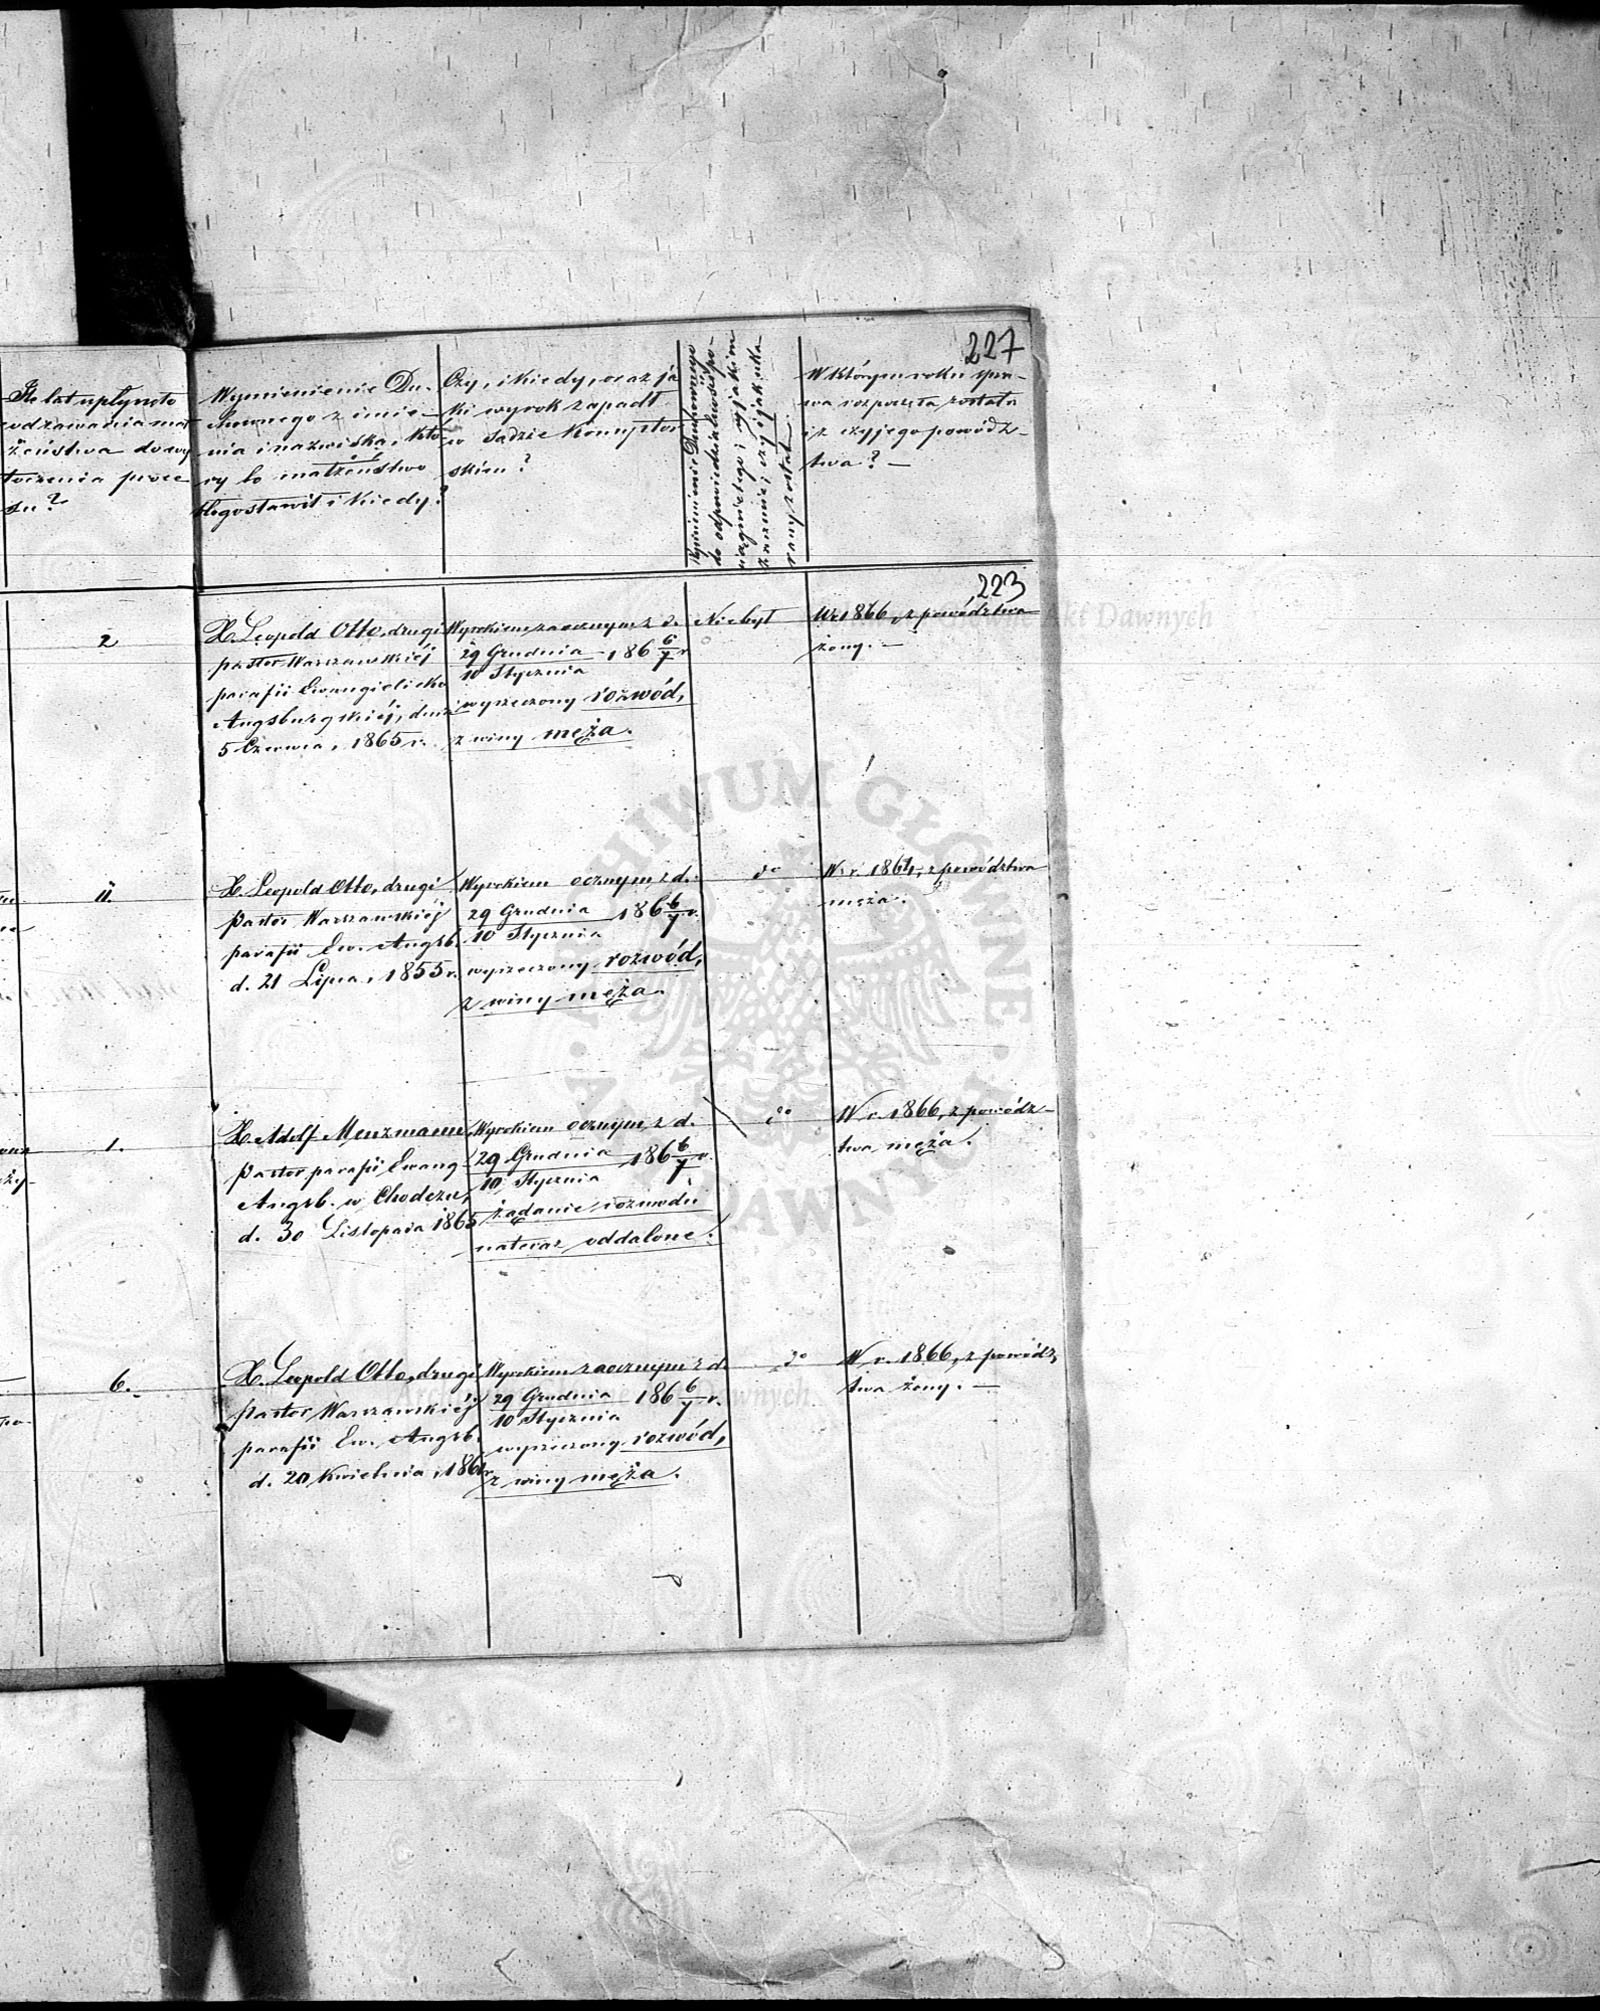 227
Ile lat upłynęło
od zawarcia mał
żeństwa do wy
toczenia proce
su?
Wymienienie Du-
chownego z imie-
nia i nazwiska, któ
ry to małżeństwo
błogosławił i kiedy?
Czy, i kiedy, oraz ja
ki wyrok zapadł
w Sądzie Konsystor
skim?
Wymienienie Duchownego
do odpowiedzialności po-
ciągniętego; czy i jak uka-
rany został
W którym roku spra-
wa rozpoczęta została
i z czyjego powódz-
twa? —
223
2
X. Leopold Otto, drugi
pastor Warszawskiéj
parafii Ewangielicko
Augsburgskiéj, dnia
5 Czerwca, 1865 r.
Wyrokiem zaocznym z d.
29 Grudnia 1866/7 r.
10 Stycznia
wyrzeczony rozwód,
z winy męża.
Nie był
W r. 1866, z powództwa
żony. —
11.
X. Leopold Otto, drugi
Pastor Warszawskiéj
parafii Ew. Augsb.
d. 21 Lipca, 1855 r.
Wyrokiem ocznym, z d.
29 Grudnia 1866/7 r.
10 Stycznia
wyrzeczony rozwód,
z winy męża.
do
W r. 1864, z powództwa
męża.
1.
X. Adolf Menzmann,
Pastor parafii Ewang
Augsb. w Chodczu,
d. 30 Listopada 1865
Wyrokiem ocznym, z d.
29 Grudnia 1866/7 r.
10 Stycznia
żądanie rozwodu
nateraz oddalone.
do
W r. 1866, z powódz-
twa męża.
6.
X. Leopold Otto, drugi
Pastor Warszawskiéj
parafii Ew. Augsb.
d. 20 Kwietnia, 186
Wyrokiem zaocznym z d.
29 Grudnia 1866/7 r.
10 Stycznia
wyrzeczony rozwód,
z winy męża.
do
W r. 1866, z powódz
twa żony. —
ARCHIWUM GŁÓWNE AKT DAWNYCH